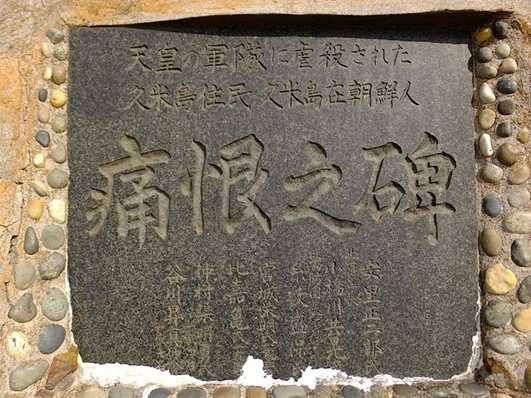 天皇の軍隊に虐殺された
久米島住民・久米島在朝鮮人
痛恨之碑
安里正二郎
小橋川共晃
糸数盛保
宮城栄明
比嘉亀
仲村渠明勇
谷川昇